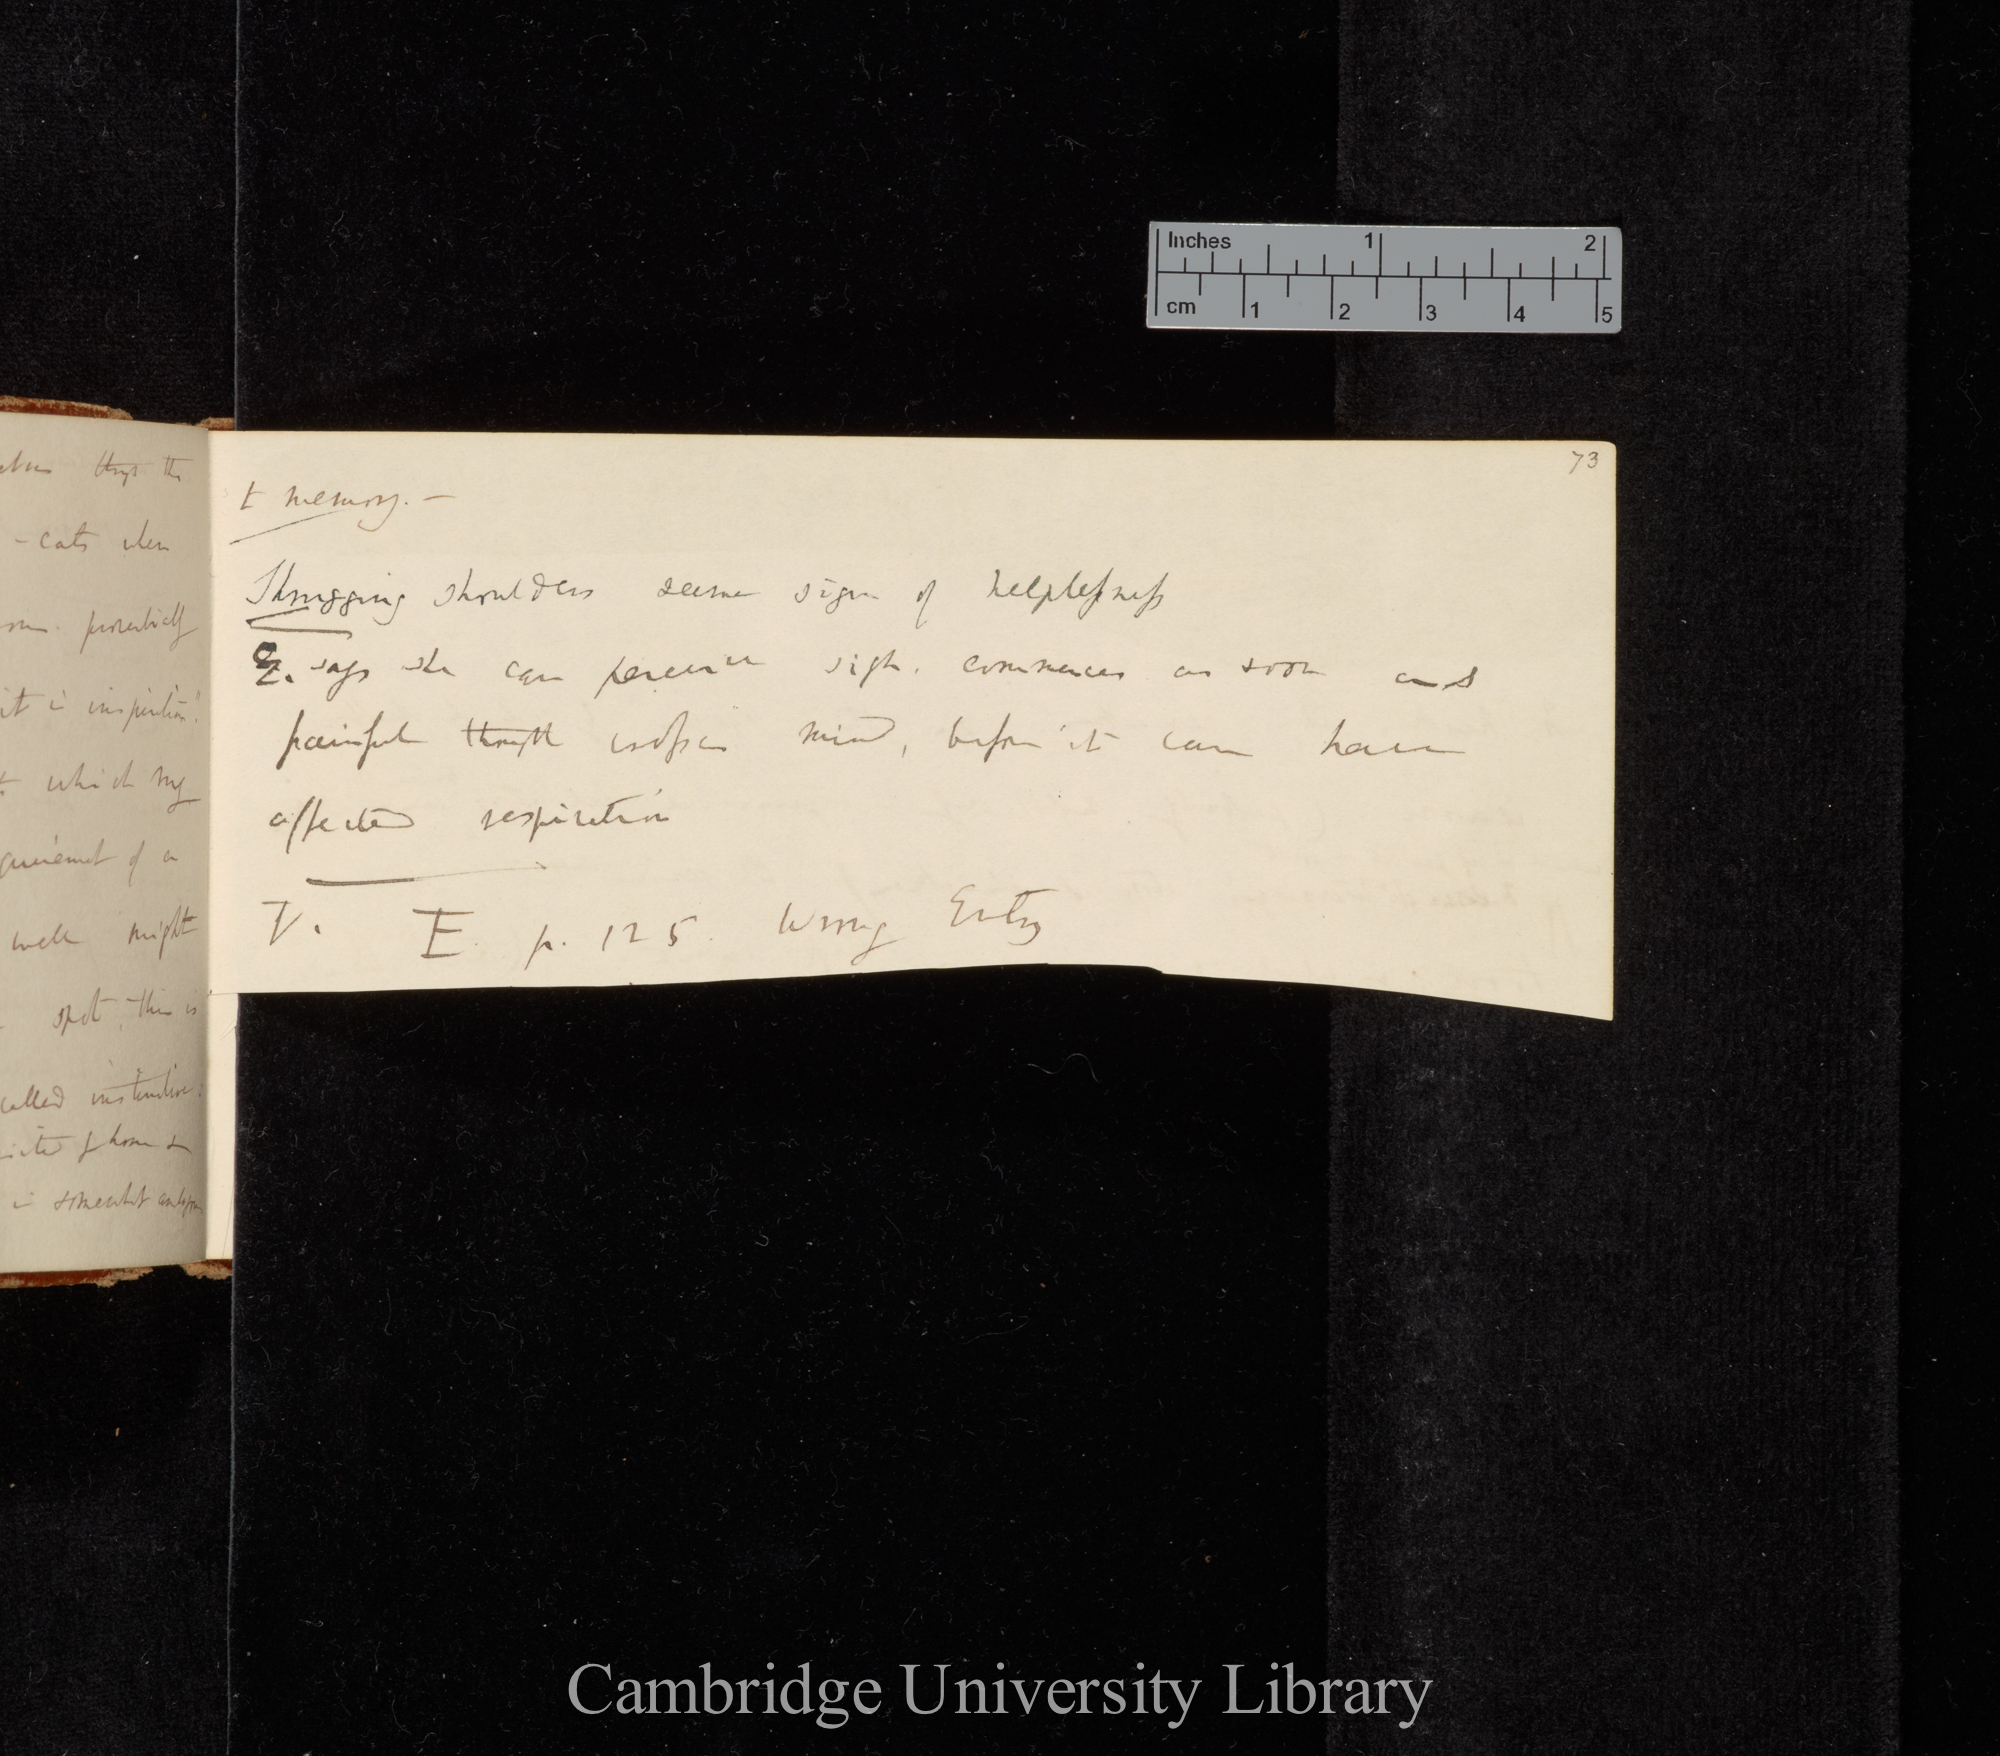 73
to memory. —
Shrugging shoulders seems sign of helplessness
E. says she can perceive sigh. commences as soon as
painful thought crosses mind, before it can have
affected respiration
V. E p. 125. Wrong Entry
Inches 1 2
cm 1 2 3 4 5
things the
- cats when
proverbially
it is inspiration."
which my
of a
well might
spot, this is
called instinctive:
of home &
is somewhat
Cambridge University Library